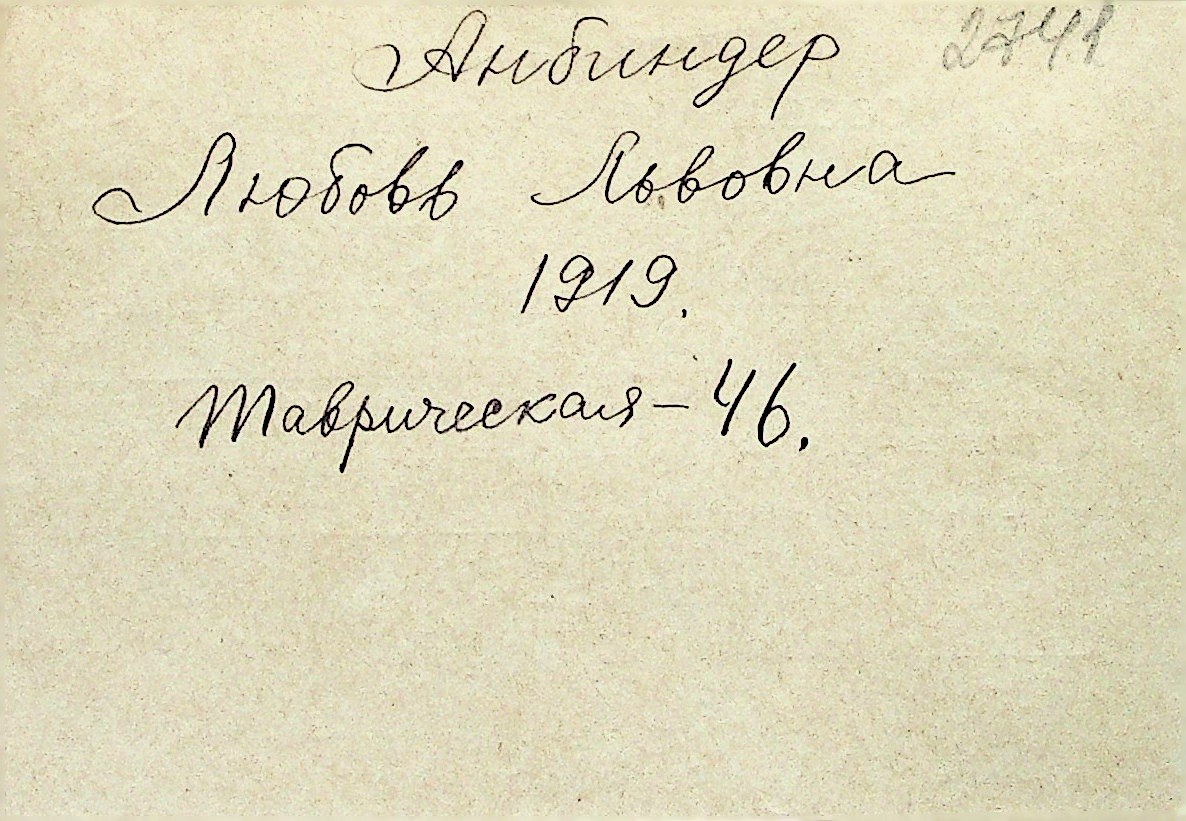 Анбиндер 2741
Любовь Львовна
1919.
Таврическая - 46.